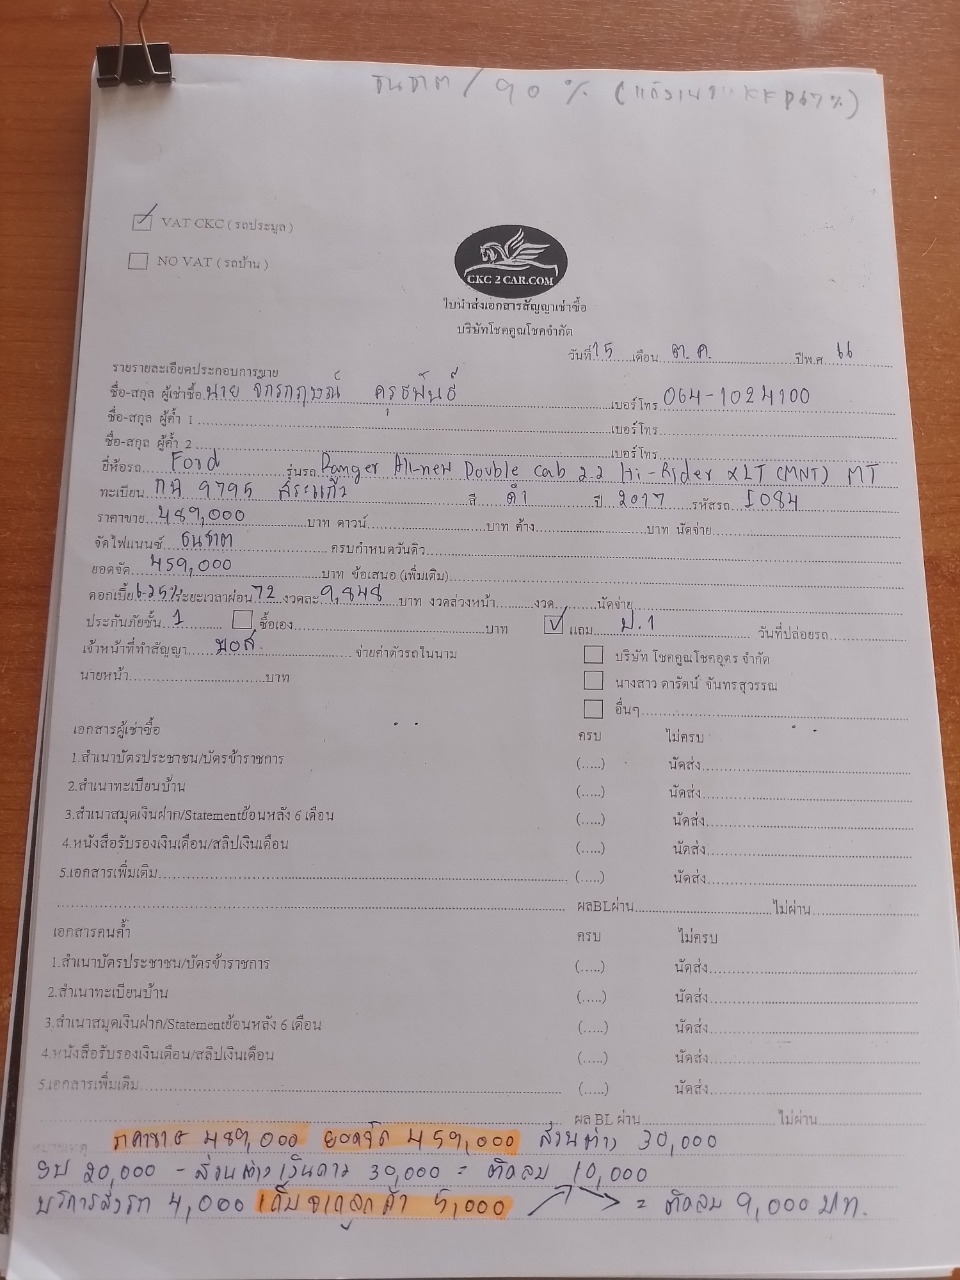 ธนชาต / 90 % ( KKP 67 % )
VAT CKC ( รถประมูล )
NO VAT ( รถบ้าน )
CKC 2 CAR.COM
ใบนำส่งเอกสารสัญญาเช่าซื้อ
บริษัทโชคคูณโชคจำกัด
วันที่ 15 เดือน ต.ค. ปีพ.ศ. 66
รายรายละเอียดประกอบการขาย
ชื่อ-สกุล ผู้เช่าซื้อ นาย จักรกฤษณ์ ครุธพันธ์ เบอร์โทร 064-1024100
ชื่อ-สกุล ผู้ค้ำ 1 เบอร์โทร
ชื่อ-สกุล ผู้ค้ำ 2 เบอร์โทร
ยี่ห้อรถ Ford รุ่นรถ Ranger All-new Double Cab 2.2 Hi-Rider XLT (MNT) MT
ทะเบียน 9795 สระแก้ว สี ดำ ปี 2017 รหัสรถ I084
ราคาขาย 489,000 บาท ดาวน์ บาท ค้าง บาท นัดจ่าย
จัดไฟแนนซ์ ธนชาต ครบกำหนดวันดิว
ยอดจัด 459,000 บาท ข้อเสนอ (เพิ่มเติม)
ดอกเบี้ย 6.25% ระยะเวลาผ่อน 72 งวดละ 9,848 บาท งวดล่วงหน้า งวด นัดจ่าย
ประกันภัยชั้น 1 ซื้อเอง บาท แถม ป.1 วันที่ปล่อยรถ
เจ้าหน้าที่ทำสัญญา มอส. จ่ายค่าตัวรถในนาม บริษัท โชคคูณโชคอุดร จำกัด
นายหน้า บาท นางสาว ดารัตน์ จันทรสุวรรณ
อื่นๆ
เอกสารผู้เช่าซื้อ ครบ ไม่ครบ
1.สำเนาบัตรประชาชน/บัตรข้าราชการ (.....) นัดส่ง
2.สำเนาทะเบียนบ้าน (.....) นัดส่ง
3.สำเนาสมุดเงินฝาก/Statementย้อนหลัง 6 เดือน (.....) นัดส่ง
4.หนังสือรับรองเงินเดือน/สลิปเงินเดือน (.....) นัดส่ง
5.เอกสารเพิ่มเติม (.....) นัดส่ง
ผลBLผ่าน ไม่ผ่าน
เอกสารคนค้ำ ครบ ไม่ครบ
1.สำเนาบัตรประชาชน/บัตรข้าราชการ (.....) นัดส่ง
2.สำเนาทะเบียนบ้าน (.....) นัดส่ง
3.สำเนาสมุดเงินฝาก/Statementย้อนหลัง 6 เดือน (.....) นัดส่ง
4.หนังสือรับรองเงินเดือน/สลิปเงินเดือน (.....) นัดส่ง
5.เอกสารเพิ่มเติม (.....) นัดส่ง
ผล BL ผ่าน ไม่ผ่าน
หมายเหตุ ราคาขาย 489,000 ยอดจัด 459,000 ส่วนต่าง 30,000
งบ 20,000 - ส่วนต่างเงินดาว 30,000 = ติดลบ 10,000
บริการส่งรถ 4,000 เก็บจากลูกค้า 5,000 = ติดลบ 9,000 บาท.